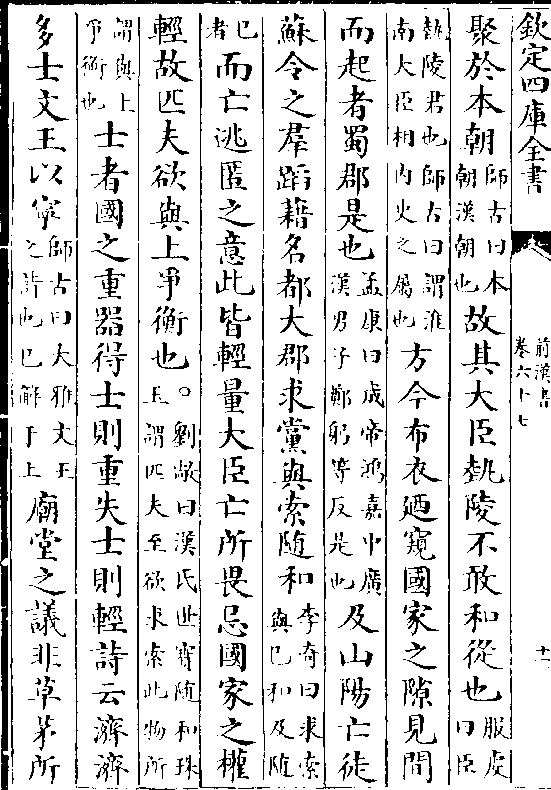 欽定四庫全書
前漢書
卷六十七
十一
聚於本朝師古曰本朝漢朝也故其大臣埶陵不敢和從也服虔曰臣
埶陵君也師古曰謂淮南大臣相内史之屬也方今布衣廼窺國家之隙見間
而起者蜀郡是也孟康曰成帝鴻嘉中廣漢男子鄭躬等反是也及山陽亡徒
蘇令之羣蹈藉名都大郡求黨與索随和李奇曰求索與已和及随
已者而亡逃匿之意此皆輕量大臣亡所畏忌國家之權
輕故匹夫欲與上爭衡也○劉敞曰漢氏世寳随和珠玉謂匹夫至欲求索此物所
謂與上爭衡也士者國之重器得士則重失士則輕詩云濟濟
多士文王以寧師古曰大雅文王之詩也已解于上廟堂之議非草茅所